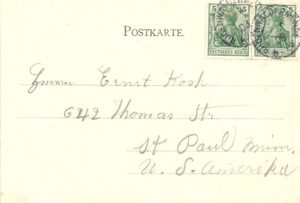 POSTKARTE.
5 5
DEUTSCHES REICH
Herrn Ernst Koch
642 Thomas Str
St Paul Minn.
U. S. Amerika